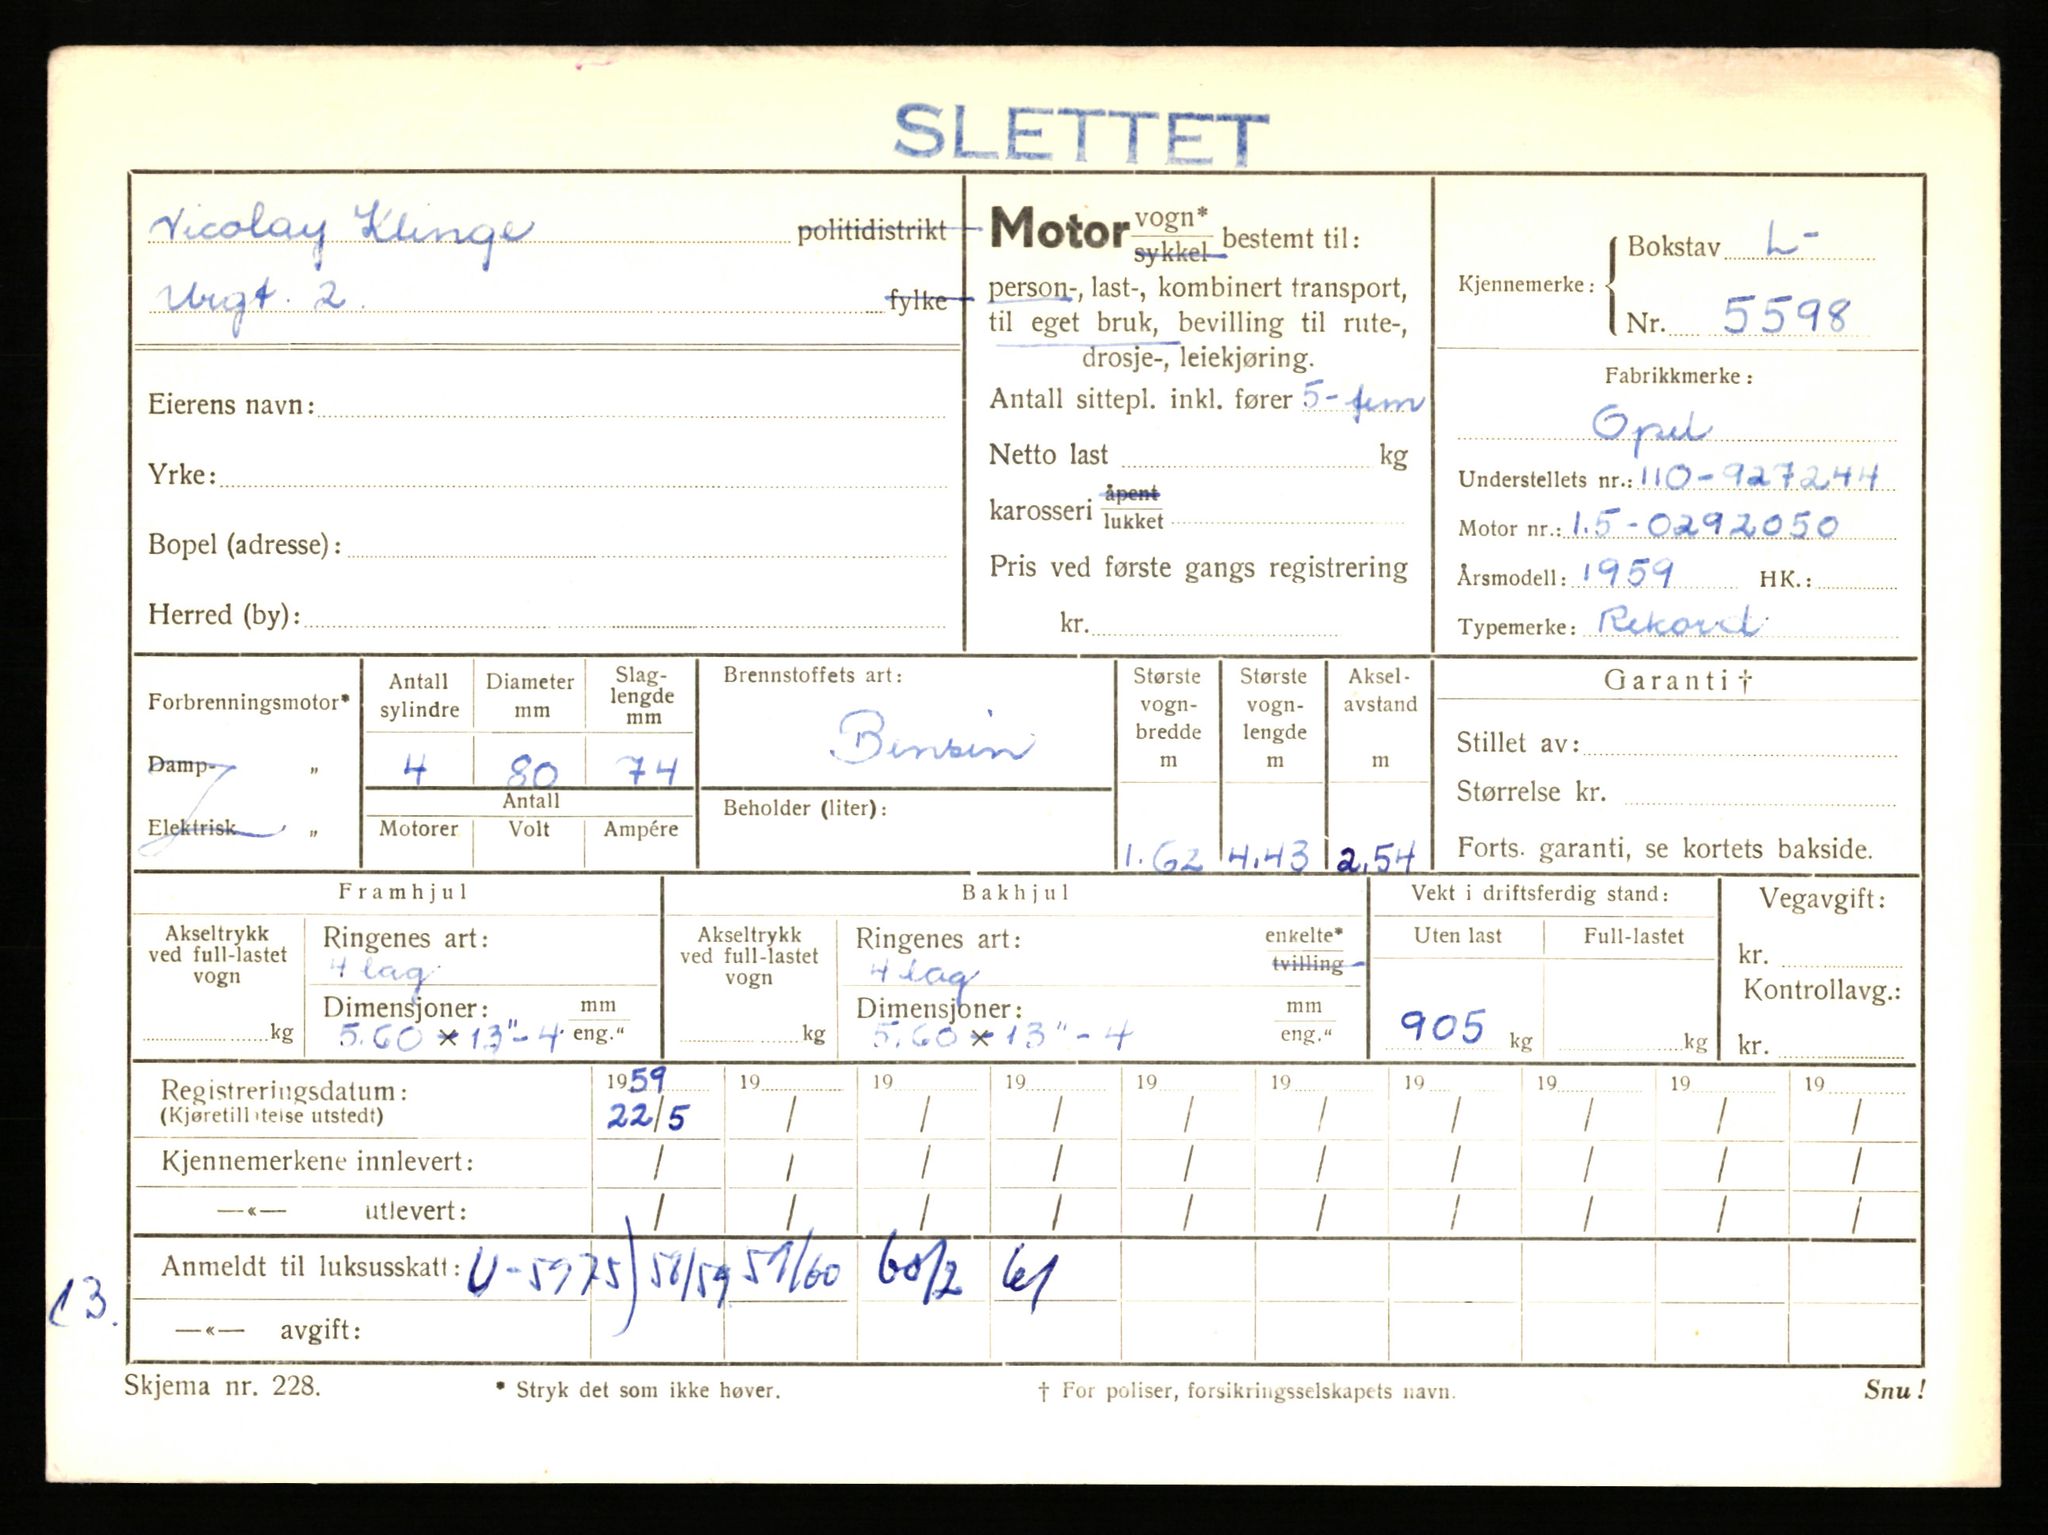 SLETTET
Nicolay Klinge politidistrikt
Urgt. 2. fylke
Eierens navn:
Yrke:
Bopel (adresse):
Herred (by):
Motor vogn* sykkel bestemt til:
person-, last-, kombinert transport,
til eget bruk, bevilling til rute-,
drosje-, leiekjøring.
Antall sittepl. inkl. fører 5- fem
Netto last kg
karosseri åpent lukket
Pris ved første gangs registrering
kr.
Kjennemerke: Bokstav L-
Nr. 5598
Fabrikkmerke:
Opel
Understellets nr.: 110-927244
Motor nr.: 1.5-0292050
Årsmodell: 1959 HK.:
Typemerke: Rekord
Forbrenningsmotor*
Damp- „
Elektrisk „
Antall sylindre
4
Diameter mm
80
Slag-
lengde
mm
74
Antall
Motorer Volt Ampére
Brennstoffets art:
Bensin
Beholder (liter):
Største
vogn-
bredde
m
1.62
Største
vogn-
lengde
m
4.43
Aksel-
avstand
m
2.54
Garanti †
Stillet av:
Størrelse kr.
Forts. garanti, se kortets bakside.
Framhjul
Akseltrykk
ved full-lastet
vogn
kg
Ringenes art:
4 lag
Dimensjoner: mm
5.60 x 13"-4 eng."
Bakhjul
Akseltrykk
ved full-lastet
vogn
kg
Ringenes art: enkelte*
4 lag tvilling
Dimensjoner: mm
5.60 x 13" - 4 eng."
Vekt i driftsferdig stand:
Uten last Full-lastet
905 kg kg
Vegavgift:
kr.
Kontrollavg.:
kr.
Registreringsdatum: 1959 19 19 19 19 19 19 19 19 19
(Kjøretillatelse utstedt) 22/5 / / / / / / / / /
Kjennemerkene innlevert: / / / / / / / / / /
—«— utlevert: / / / / / / / / / /
Anmeldt til luksusskatt: U-5975) 58/59 59/60 60/2 61
13.
—«— avgift:
Skjema nr. 228. * Stryk det som ikke høver. † For poliser, forsikringsselskapets navn. Snu!